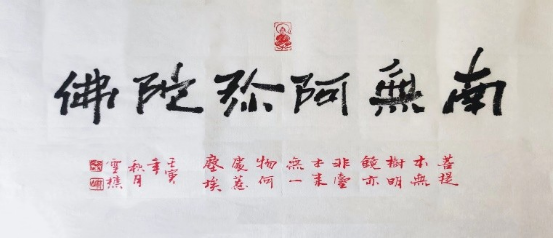 南無阿弥陀佛
菩提
本無
樹明
鏡亦
非臺
本来
無一
物何
處惹
塵埃
壬寅
年
秋月
雪樵